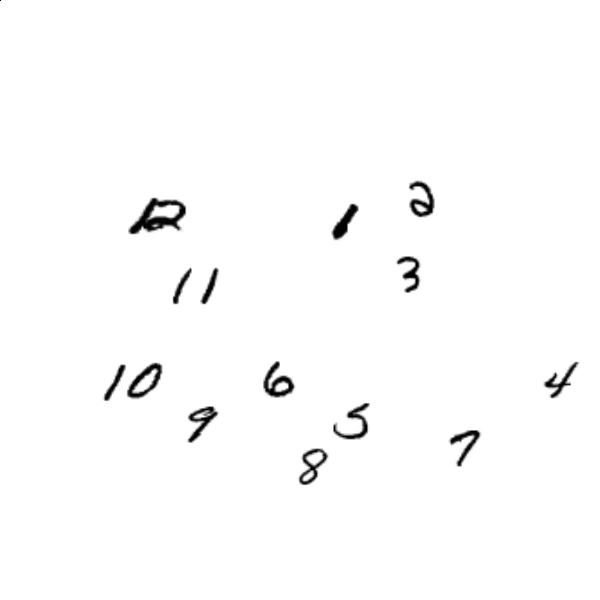 12 1 2
11 3
10 6 4
9 5 7
8